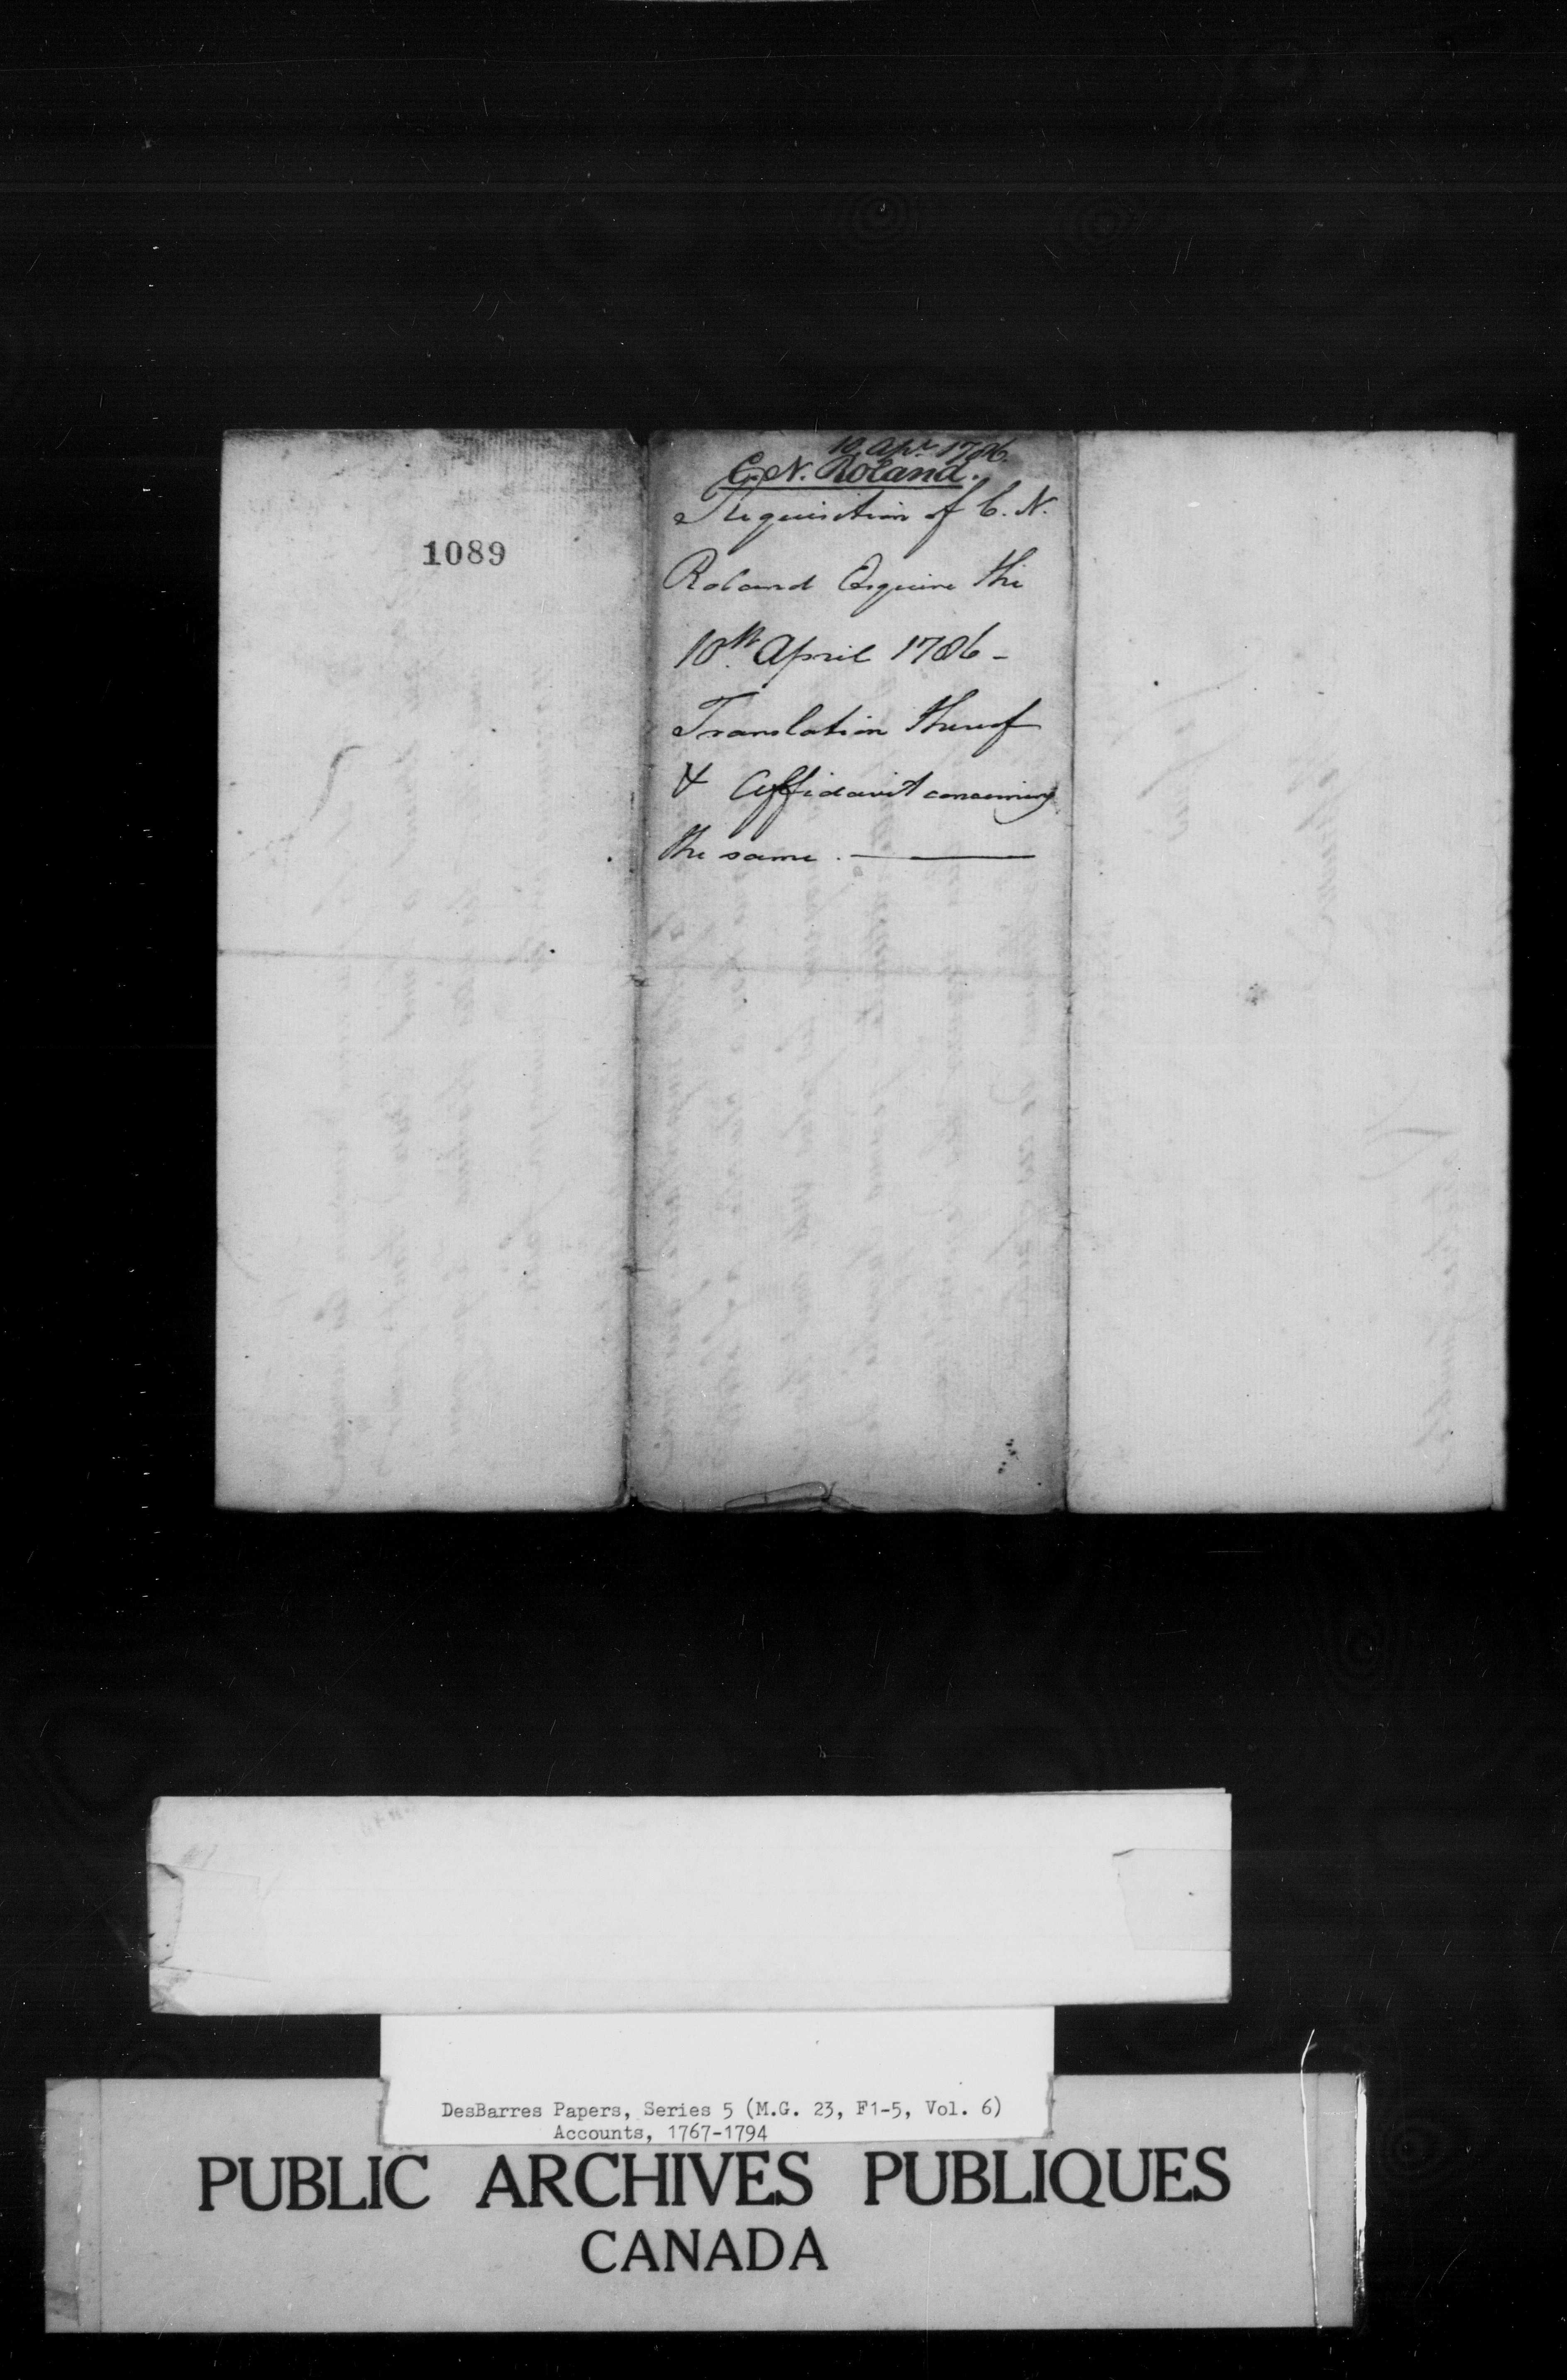 1089
10 Apr. 1786.
C. N. Roland.
Requisition of C. N.
Roland Esquire the
10th April 1786 -
Translation thereof
& Affidavit concerning
the same. —
DesBarres Papers, Series 5 (M.G. 23, F1-5, Vol. 6)
Accounts, 1767-1794
PUBLIC ARCHIVES PUBLIQUES
CANADA